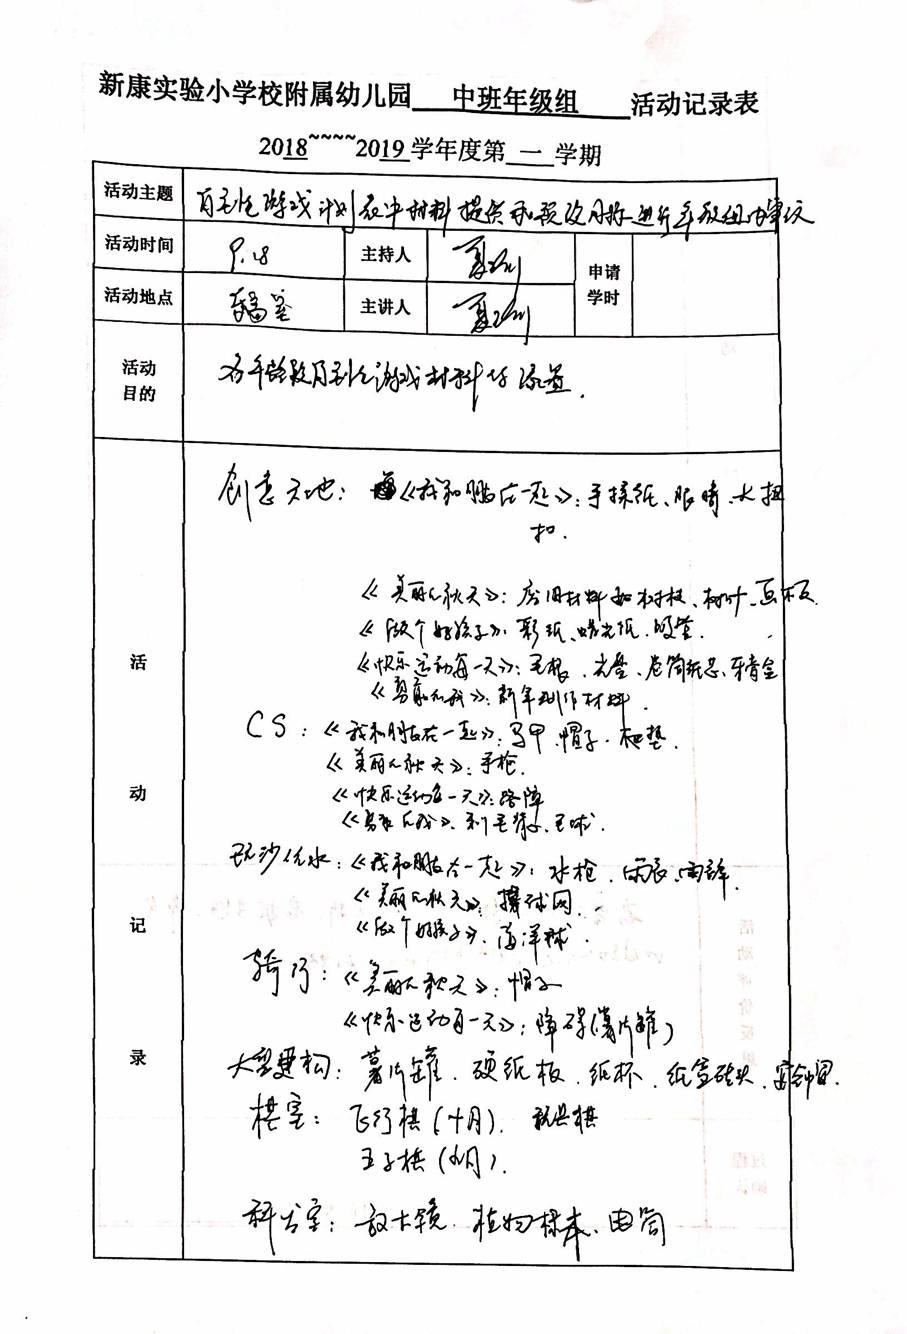 新康实验小学校附属幼儿园 中班年级组 活动记录表
2018~~~~2019学年度第 一 学期
活动主题 自主性游戏计划表中材料提供和预设目标进行年级组内审议
活动时间 9.18 主持人 申请学时
活动地点 主讲人
活动目的 各年龄段自主性游戏材料的添置.
活动记录
创意天地：《我和朋友在一起》：手揉纸、眼睛、大纽
扣.
《美丽的秋天》：废旧材料如树枝、树叶、画板
《做个好孩子》：彩纸、蜡光纸、吸管.
《快乐运动每一天》：毛根、光盘、卷筒纸芯、牙膏盒
《勇敢的我》：新年制作材料.
CS：《我和朋友在一起》：马甲、帽子、地垫.
《美丽的秋天》：手枪.
《快乐运动每一天》：路障
《勇敢的我》：毛球.
玩沙玩水：《我和朋友在一起》：水枪、雨衣、雨鞋.
《美丽的秋天》：捞球网.
《做个好孩子》：海洋球.
骑行：《美丽的秋天》：帽子
《快乐运动每一天》：障碍(薯片罐)
大型建构：薯片罐、硬纸板、纸杯、纸盒砖头、
棋室：飞行棋(十月). 棋
五子棋(九月).
科学室：放大镜、植物标本、